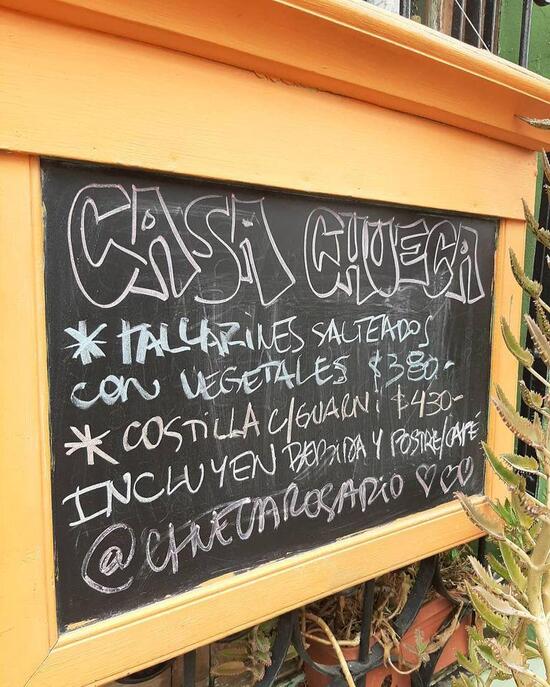 CASA CHUECA
* TALLARINES SALTEADOS
CON VEGETALES $380.-
* COSTILLA C/GUARNI $430-
INCLUYEN BEBIDA Y POSTRE/CAFÉ
@CHUECAROSARIO